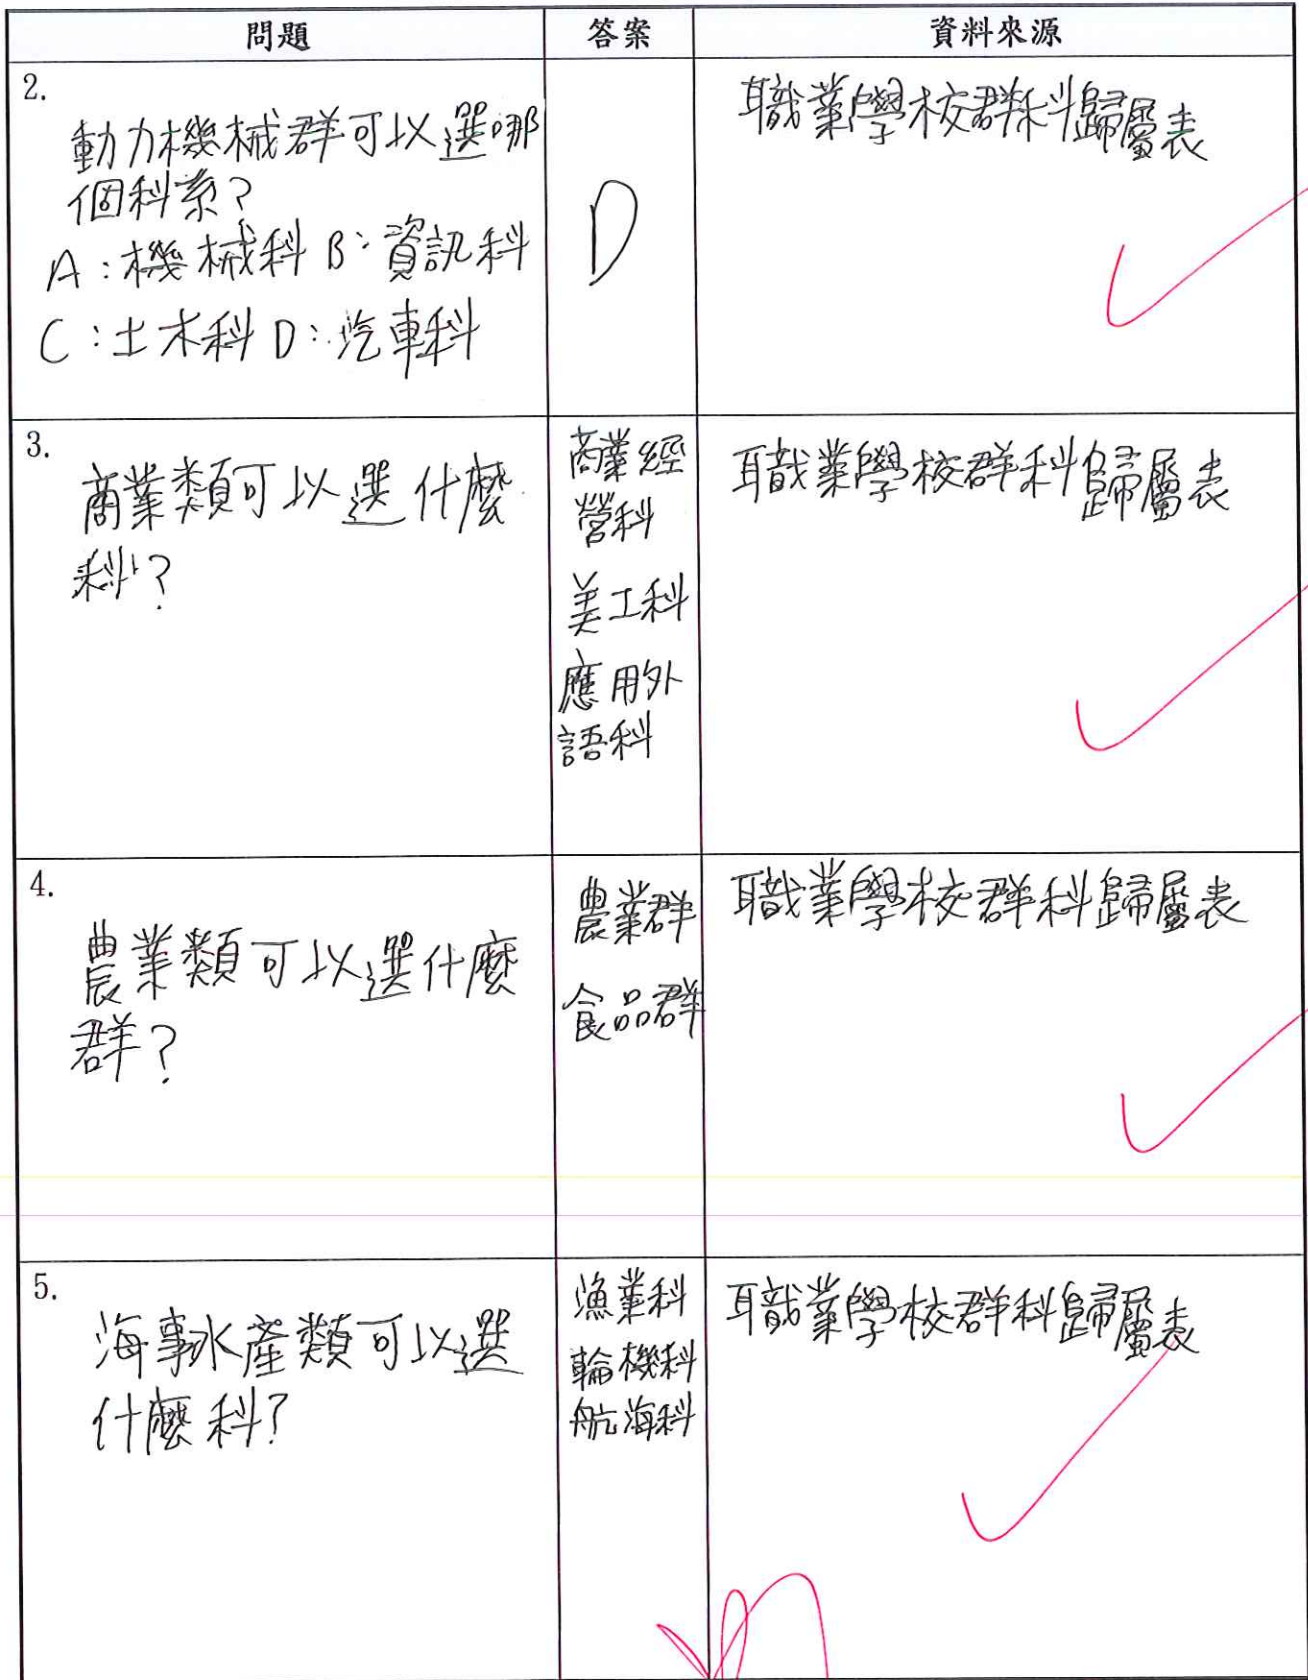 問題 答案 資料來源
2.
動力機械群可以選哪
個科系?
A:機械科 B:資訊科
C:土木科 D:汽車科
D
職業學校群科歸屬表
3.
商業類可以選什麼
科?
商業經
營科
美工科
應用外
語科
職業學校群科歸屬表
4.
農業類可以選什麼
群?
農業群
食品群
職業學校群科歸屬表
5.
海事水產類可以選
什麼科?
漁業科
輪機科
航海科
職業學校群科歸屬表